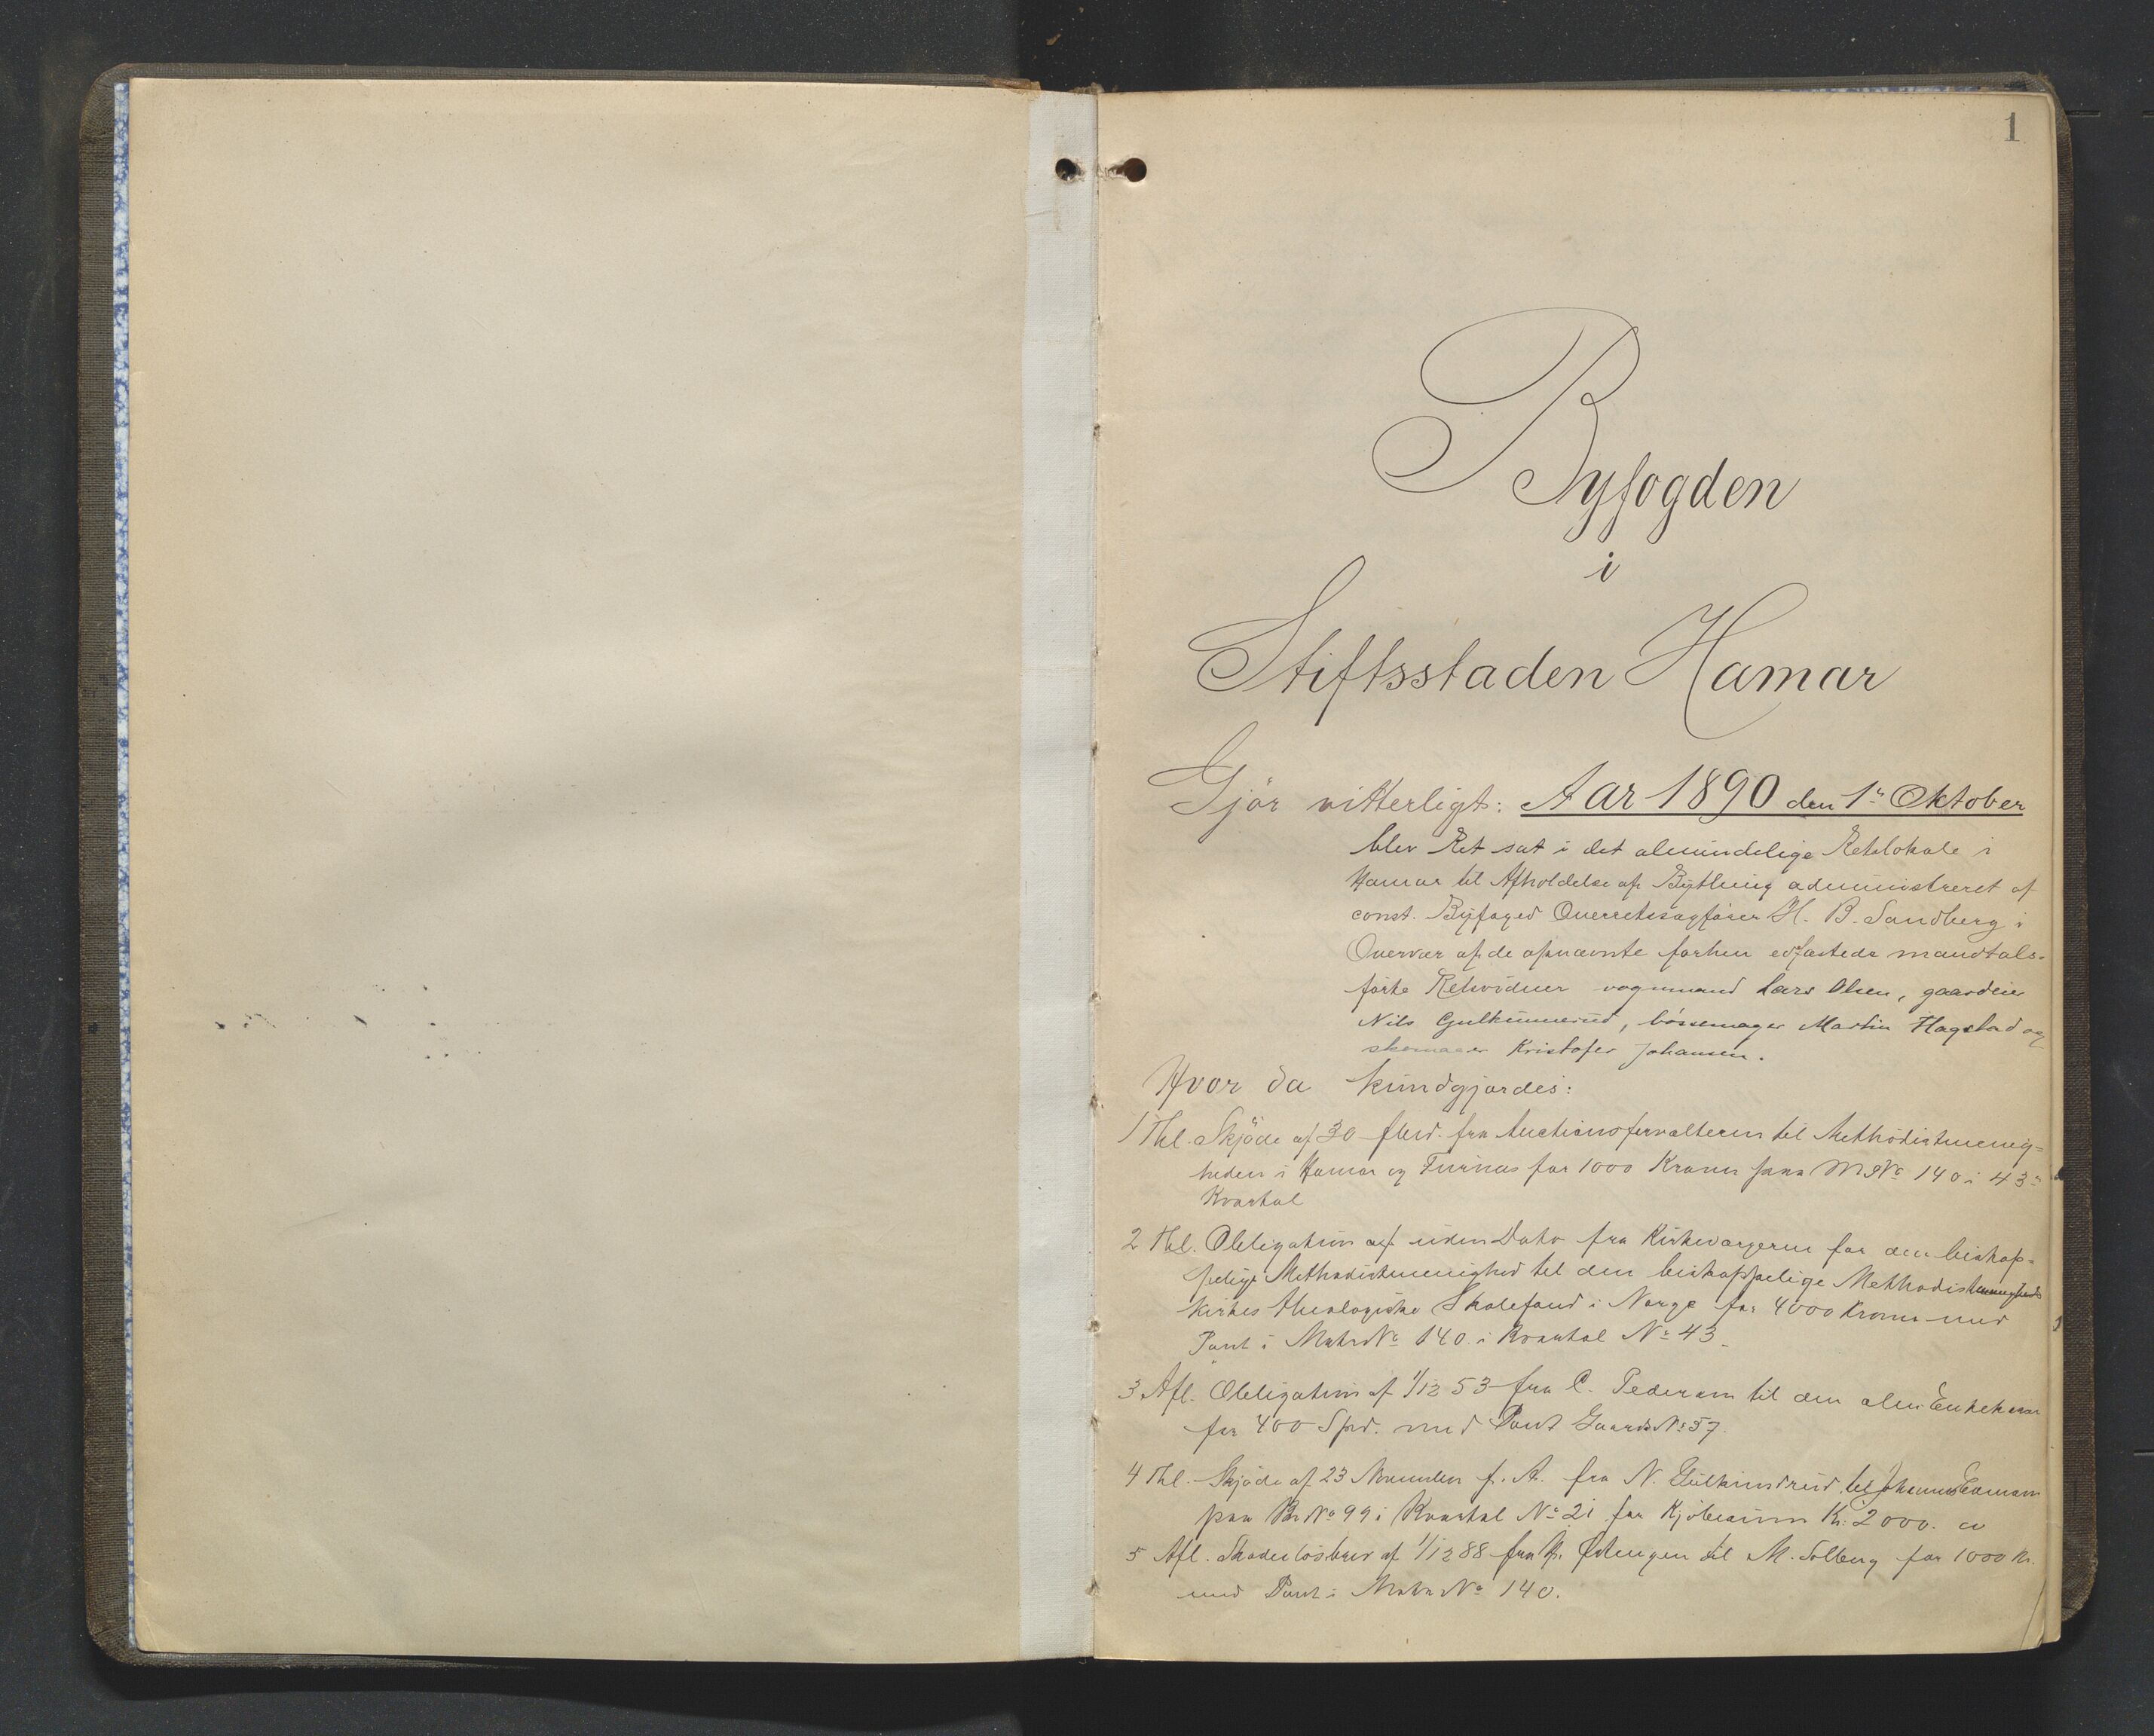 1
Byfogden
i
Stiftsstaden Hamar
Gjör vitterligt: Aar 1890 den 1ste Oktober
blev Ret sat i det almindelige Retslokale i
Hamar til Afholdelse af Bything administreret af
const. Byfoged Overretssagfører H. B. Sandberg i
Overvær af de opnævnte forhen edfæstede mandtals-
førte Retsvidner vognmand Lars Olsen, gaardeier
Nils Gulkinnerud, bössemager Martin Hagstad og
skomager Kristofer Johansen.
Hvor da kundgjordes:
1 Thl. Skjöde af 30 f. Md. fra Auctionsforvalteren til Methodistmenig-
heden i Hamar og Furnes for 1000 Kroner paa M No 140 i 43de
Kvartal
2 Thl. Obligation af uden Dato fra Kirkeværgerne for den biskop-
pelige Methodistmenighed til den biskoppelige Methodistmenigheds
kirkes theologiske Skolefond i Norge for 4000 Kroner med
Pant i Matr No 140 i Kvartal No 43
3 Afl. Obligation af 1/12 53 fra C. Pedersen til den alm. Enkekasse
for 400 Spd. med Pant Gaards No 57.
4 Thl. Skjöde af 23 November f. A. fra N. Gulkindrud til
paa Br No 99 i Kvartal No 21 for Kjöbesum Kr. 2000.
5 Afl. Skadeslösbrev af 1/12 88 fra til M. Solberg for 1000 Kr.
med Pant i Matr No 140.